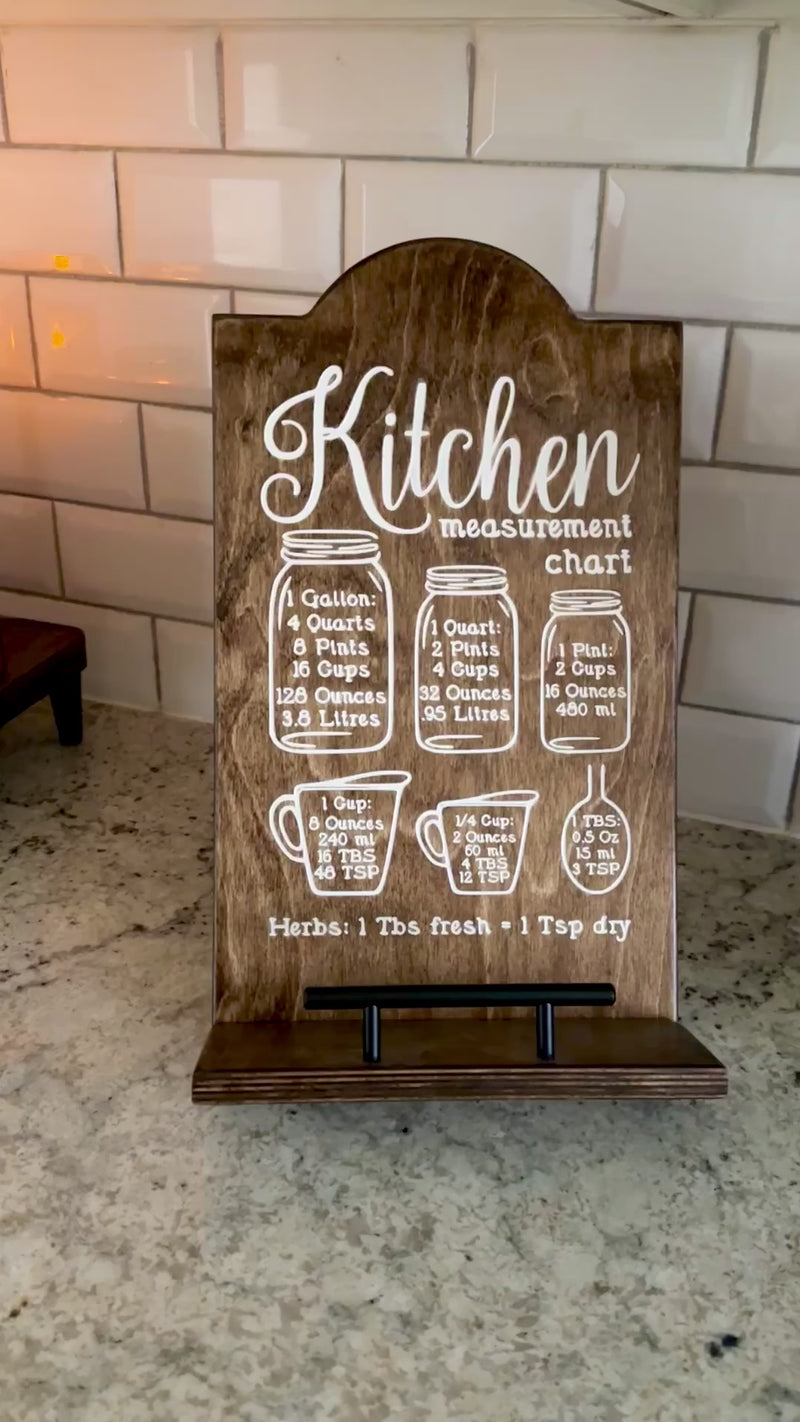 Kitchen
measurement
chart
1 Gallon:
4 Quarts
8 Pints
16 Cups
128 Ounces
3.8 Litres
1 Quart:
2 Pints
4 Cups
32 Ounces
.95 Litres
1 Pint:
2 Cups
16 Ounces
480 ml
1 Cup:
8 Ounces
240 ml
16 TBS
48 TSP
1/4 Cup:
2 Ounces
60 ml
4 TBS
12 TSP
1 TBS:
0.5 Oz
15 ml
3 TSP
Herbs: 1 Tbs fresh = 1 Tsp dry